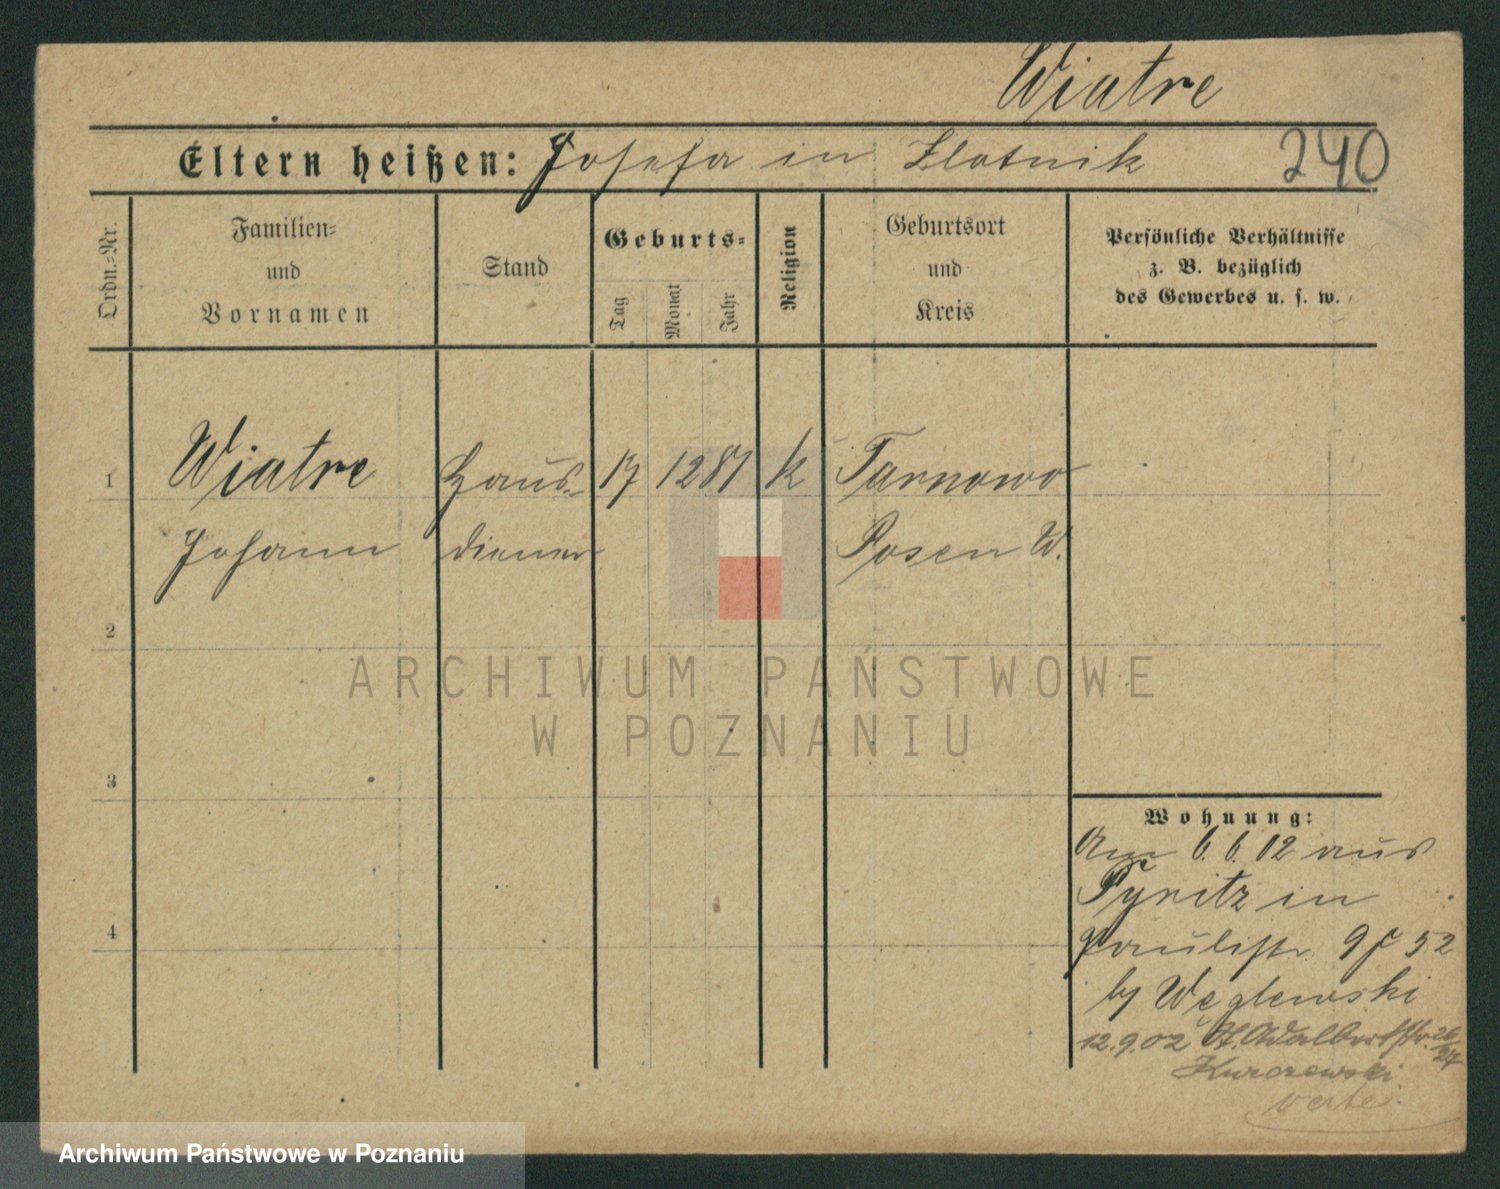 Wiatre
Eltern heißen: Josefa in Zlotnik
240
Ordn.-Nr.
Familien-
und
Vornamen
Stand
Geburts-
Tag
Monat
Jahr
Religion
Geburtsort
und
Kreis
Persönliche Verhältnisse
z. B. bezüglich
des Gewerbes u. s. w.
1 Wiatre Haus- 17 12 81 k Tarnowo
Johann diener Posen W.
2
3
4
Wohnung:
Am 6. 6. 02 aus
Pyritz in
Paulistr. 9
by Węglewski
12.9.02 St. Adalbertstr. 26/27
Kurorewski
verte.
ARCHIWUM PAŃSTWOWE
W POZNANIU
Archiwum Państwowe w Poznaniu